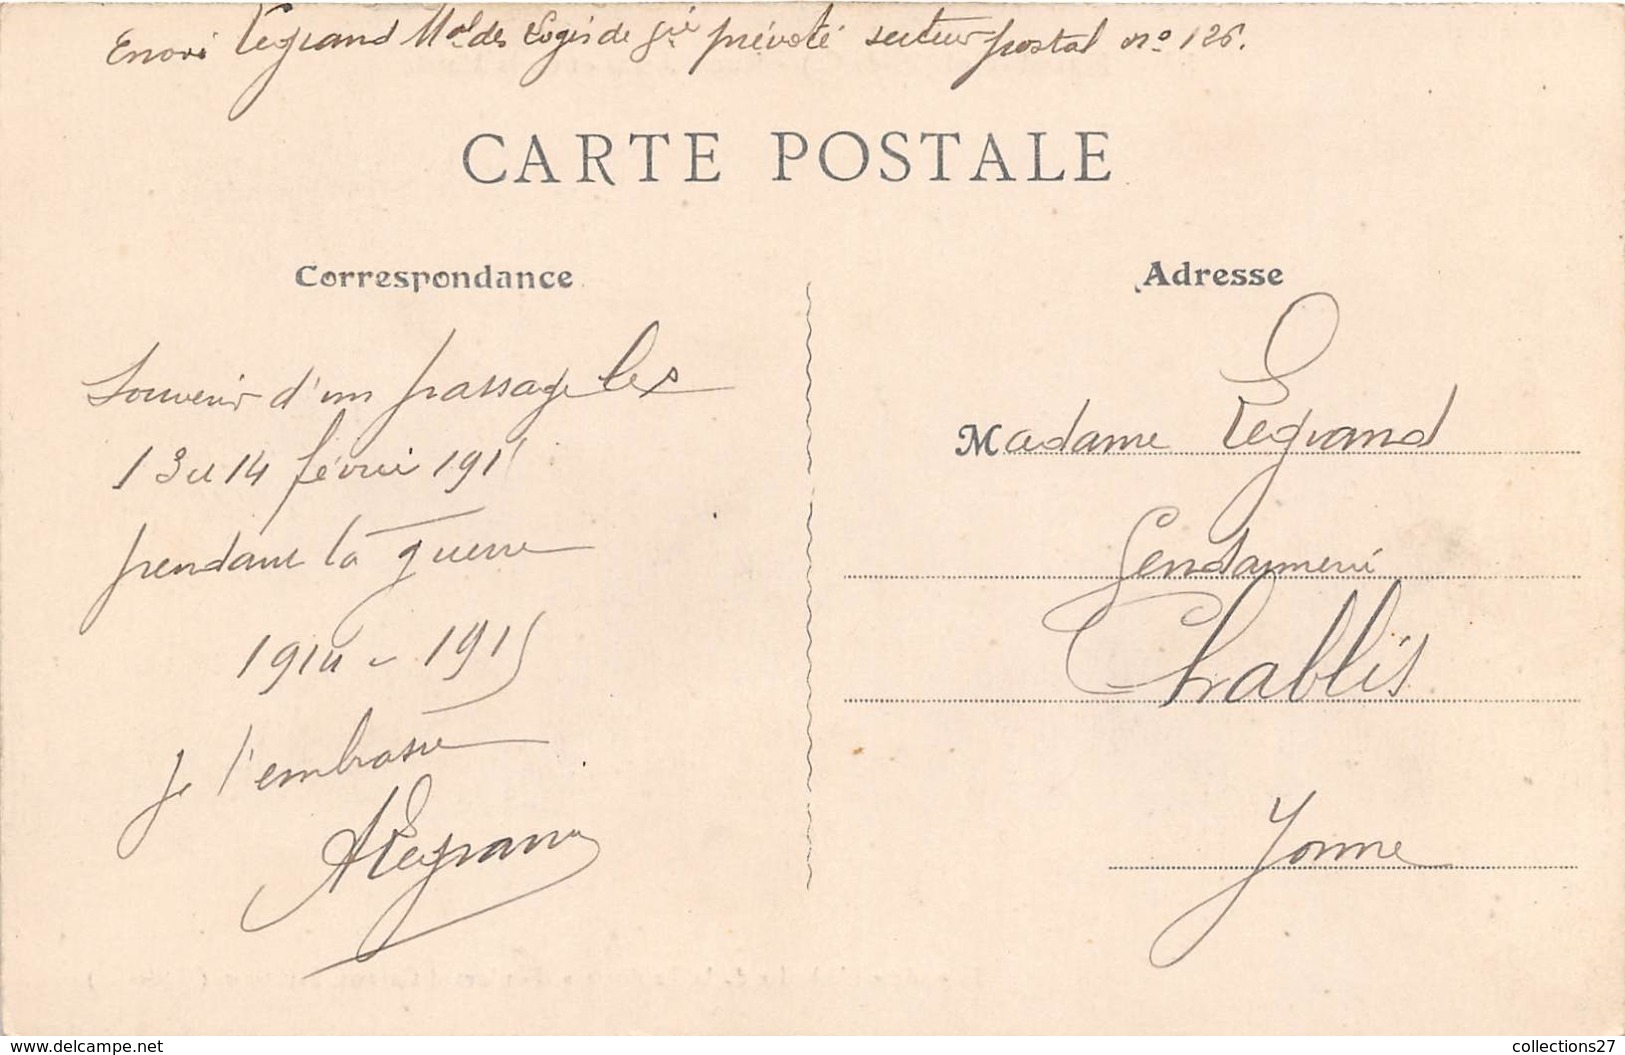 Envoi Legrand Mal des Logis de Gie prévôté secteur postal no 126.
CARTE POSTALE
Correspondance
Souvenir d'un passage les
13 et 14 février 1915
pendant la guerre
1914 - 1915
Je t'embrasse
ALegrand
Adresse
Madame Legrand
Gendarmerie
Chablis
Yonne
www.delcampe.net
collections27